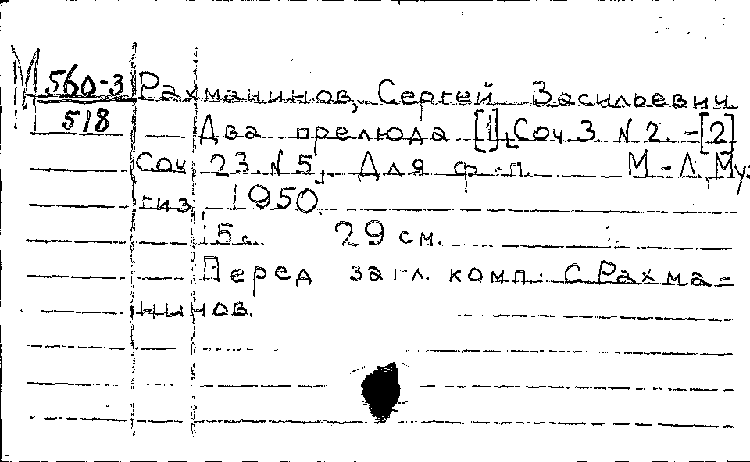 М 560-3 Рахманинов, Сергей Васильевич
518 Два прелюда [1], Соч 3 N 2. - [2]
Соч 23. N 5. Для ф.-п. М-Л, Муз
гиз, 1950.
15 с. 29 см.
Перед загл. комп: С. Рахма-
нинов.